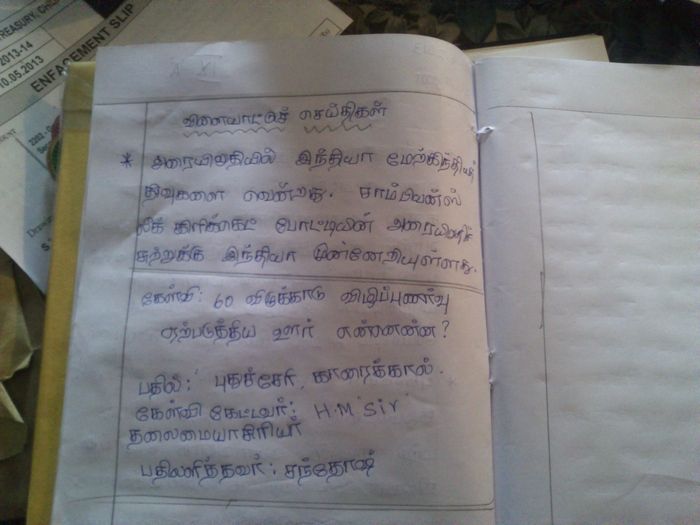 TREASURY, CH
2013-14
10.05.2013
ENFACEMENT SLIP
விளையாட்டுச் செய்திகள்
* அரையிறுதியில் இந்தியா மேற்கிந்திய
தீவுகளை வென்றது. சாம்பியன்ஸ்
லீக் கிரிக்கெட் போட்டியின் அரையிறுதிச்
சுற்றுக்கு இந்தியா முன்னேறியுள்ளது.
கேள்வி: 60 விழுக்காடு விழிப்புணர்வு
ஏற்படுத்திய ஊர் என்னென்ன?
பதில்: புதுச்சேரி, காரைக்கால்.
கேள்வி கேட்டவர்: H.M "Sir"
தலைமையாசிரியர்
பதிலளித்தவர்: சந்தோஷ்